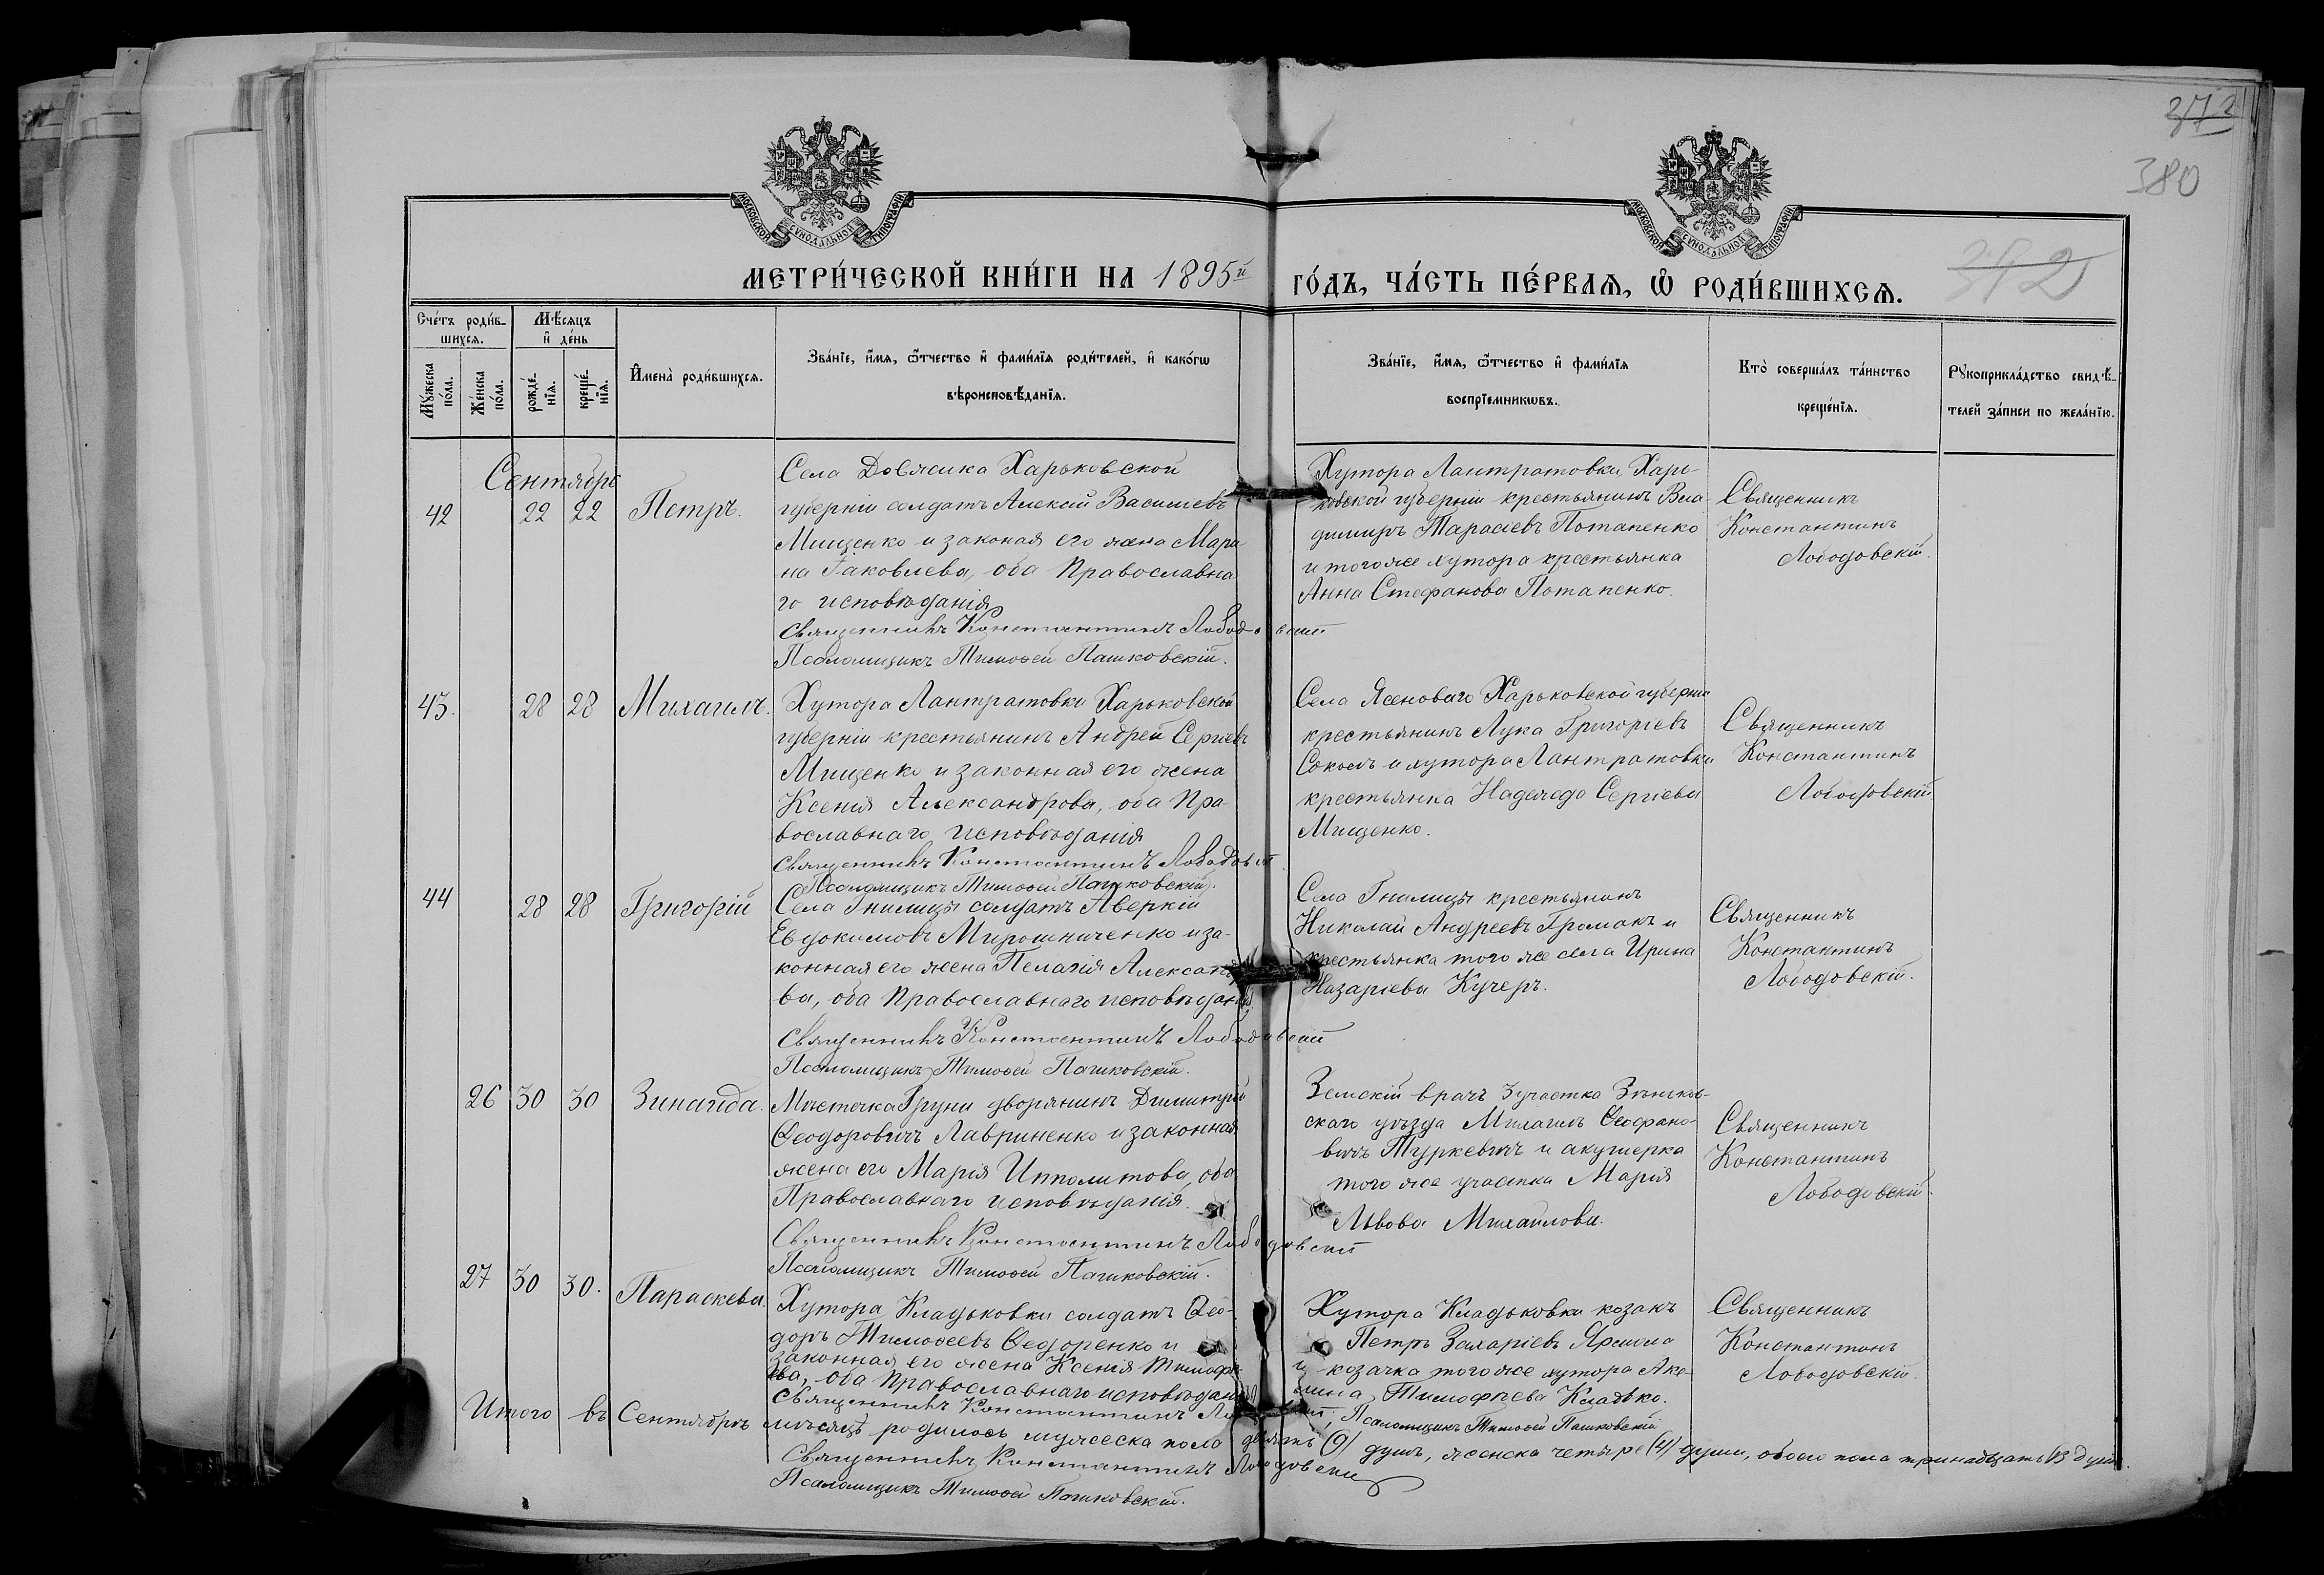 372
380
392
МОСКОВСКОЙ СѴНОДАЛЬНОЙ ТИПОГРАФІИ
МОСКОВСКОЙ СѴНОДАЛЬНОЙ ТИПОГРАФІИ
МЕТРИ́ЧЕСКОЙ КНИ́ГИ НА 1895й ГО́ДЪ, ЧА́СТЬ ПЕ́РВАѦ, Ѽ РОДИ́ВШИХСѦ.
Сче́тъ роди́вшихсѧ.
Мꙋ́жеска по́ла.
Же́нска по́ла.
Мѣ́сѧцъ и҆ де́нь
рожде́нїѧ.
креще́нїѧ.
И҆мена̀ роди́вшихсѧ.
Зва́нїе, и҆́мѧ, ѻ҆́тчество и҆ фами́лїѧ роди́телей, и҆ како́гѡ
вѣроисповѣ́данїѧ.
Зва́нїе, и҆́мѧ, ѻ҆́тчество и҆ фами́лїѧ
воспрїе́мникѡвъ.
Кто̀ соверша́лъ та́инство
креще́нїѧ.
Рꙋкоприкла́дство свидѣ́телей за́писи по жела́нїю.
Сентябрь
42
22 22
Петръ.
Села Довжика Харьковской
губерніи солдатъ Алексій Васильевъ
Мищенко и законая его жена Мари
на Іаковлева, оба Православна
го исповѣданія
Священникъ Константинъ Лободовскій
Псаломщикъ Тимоѳей Пашковскій.
Хутора Лантратовки, Харь
ковской губерніи крестьянинъ Вла
димиръ Тарасіевъ Потапенко
и того же хутора крестьянка
Анна Стефанова Потапенко.
Священникъ
Константинъ
Лободовскій.
43.
28 28
Михаилъ.
Хутора Лантратовки Харьковской
губерніи крестьянинъ Андрей Сергіевъ
Мищенко и законная его жена
Ксенія Александрова, оба Пра-
вославнаго исповѣданія
Священникъ Константинъ Лободовскій
Псаломщикъ Тимоѳей Пашковскій.
Села Ясеноваго Харьковской губерніи
крестьянинъ Лука Григоріевъ
Соколъ и хутора Лантратовки
крестьянка Надежда Сергіева
Мищенко.
Священникъ
Константинъ
Лободовскій.
44
28 28
Григорій
Села Гнилицы солдатъ Аверкій
Евдокимовъ Мирошниченко и за-
конная его жена Пелагія
ва, оба Православнаго исповѣданія.
Священникъ Константинъ Лободовскій
Псаломщикъ Тимоѳей Пашковскій.
Села Гнилицы крестьянинъ
Николай Андреевъ Громакъ и
крестьянка того же села Ирина
Назаріева Кучеръ.
Священникъ
Константинъ
Лободовскій.
26 30 30
Зинаида.
Мѣстечка Груни дворянинъ Димитрій
Ѳеодоровичъ Лавриненко и законная
жена его Марія Ипполитова, оба
Православнаго исповѣданія.
Священникъ Константинъ Лободовскій
Псаломщикъ Тимоѳей Пашковскій.
Земскій врачъ 3 участка Зѣньков-
скаго уѣзда Михаилъ Ѳеофано-
вичъ Туркевичъ и акушерка
того же участка Марія
Львова Михайлова.
Священникъ
Константинъ
Лободовскій.
27 30 30.
Параскева.
Хутора Кладьковки солдатъ Ѳео-
доръ Тимоѳеевъ Ѳедоренко и
законная его жена Ксенія Тимофѣ
ева, оба Православнаго исповѣданія
Священникъ Константинъ Лободовскій, Псаломщикъ Тимоѳей Пашковскій
Хутора Кладьковки козакъ
Петръ Захаріевъ Ярмола
и козачка того же хутора Аки-
лина Тимофѣева Кладько.
Священникъ
Константинъ
Лободовскій.
Итого въ Сентябрѣ мѣсяцѣ родилось мужеска пола девять (9) душъ, женска четыре (4) души, обоего пола тринадцать 13 душъ.
Священникъ Константинъ Лободовскій
Псаломщикъ Тимоѳей Пашковскій.